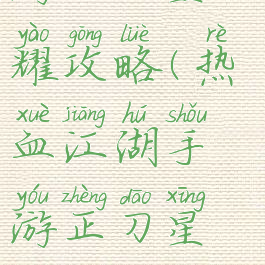 yào gōng lüè rè
耀攻略(热
xuè jiāng hú shǒu
血江湖手
yóu zhèng dāo xīng
游正刀星